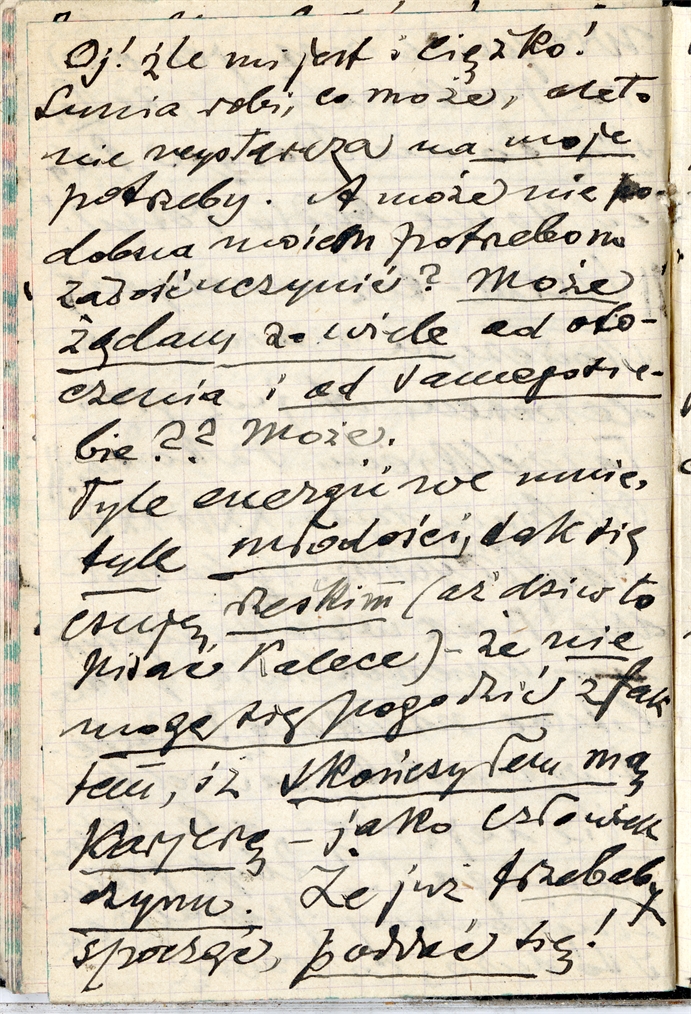 Oj! źle mi jest i ciężko!
Lunia robi, co może, ale to
nie wystarcza na moje
potrzeby. A może nie po-
dobna moiem potrzebom
zadośćuczynić? Może
żądam za wiele od oto-
czenia i od samego sie-
bie?? Może.
Tyle energii we mnie,
tyle młodości, tak się
czuję rzeskim (aż dziw to
pisać kalece) - że nie
mogę się pogodzić z fak
tem, iż skończyłem mą
karjerę - jako człowiek
czynu. Że już trzebaby
spocząć, poddać się!